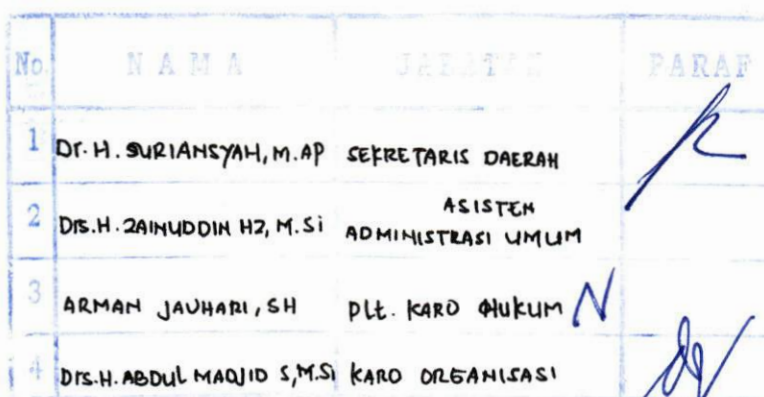 No. NAMA JABATAN PARAF
1 Dr. H. SURIANSYAH, M.AP SEKRETARIS DAERAH
2 Drs. H. ZAINUDDIN HZ, M.Si ASISTEN
ADMINISTRASI UMUM
3 ARMAN JAUHARI, SH Plt. KARO HUKUM
4 Drs. H. ABDUL MAQJID S, M.Si KARO ORGANISASI